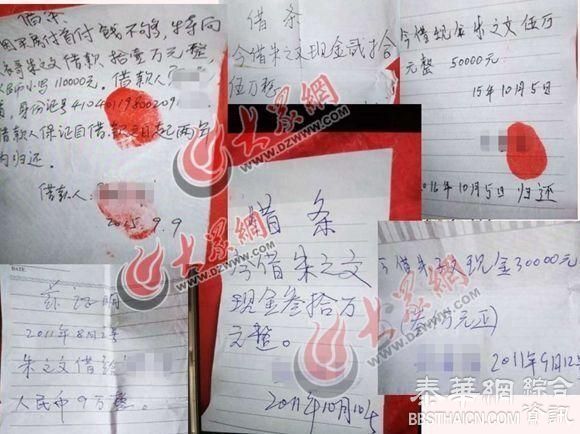 借条
因买房付首付钱不够，特向
表哥朱之文借款 拾壹万元整
人民币小写 110000元。借款人
身份证号 410401198002091
借款人保证自借款之日起两年
内归还。
借款人：
2015.9.9
借条
今借朱之文现金贰拾
伍万整
今借现金朱之文伍万
元整 50000元
15年10月5日
2016年10月5日 归还
借条
今借朱之文
现金叁拾万
元整。
2011年10月10号
DATE
证明
2011年8月2号
朱之文借给
人民币9万整。
现金30000元
(叁万元正)
2011年9月12号
大众网
WWW.DZWWW.COM
泰華網 綜合
BESTTHAICN.COM 資訊